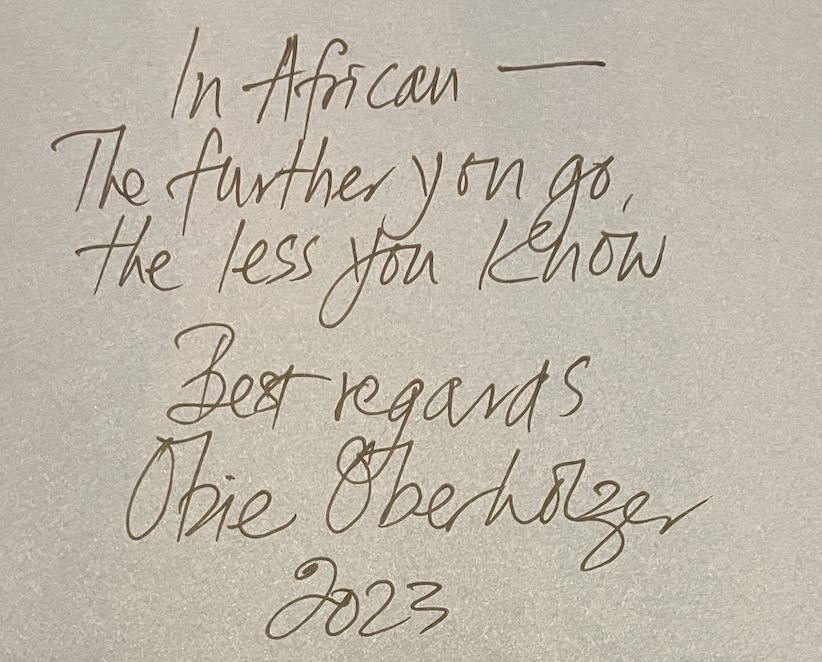 In African —
The further you go,
the less you know
Best regards
Obie Oberholzer
2023